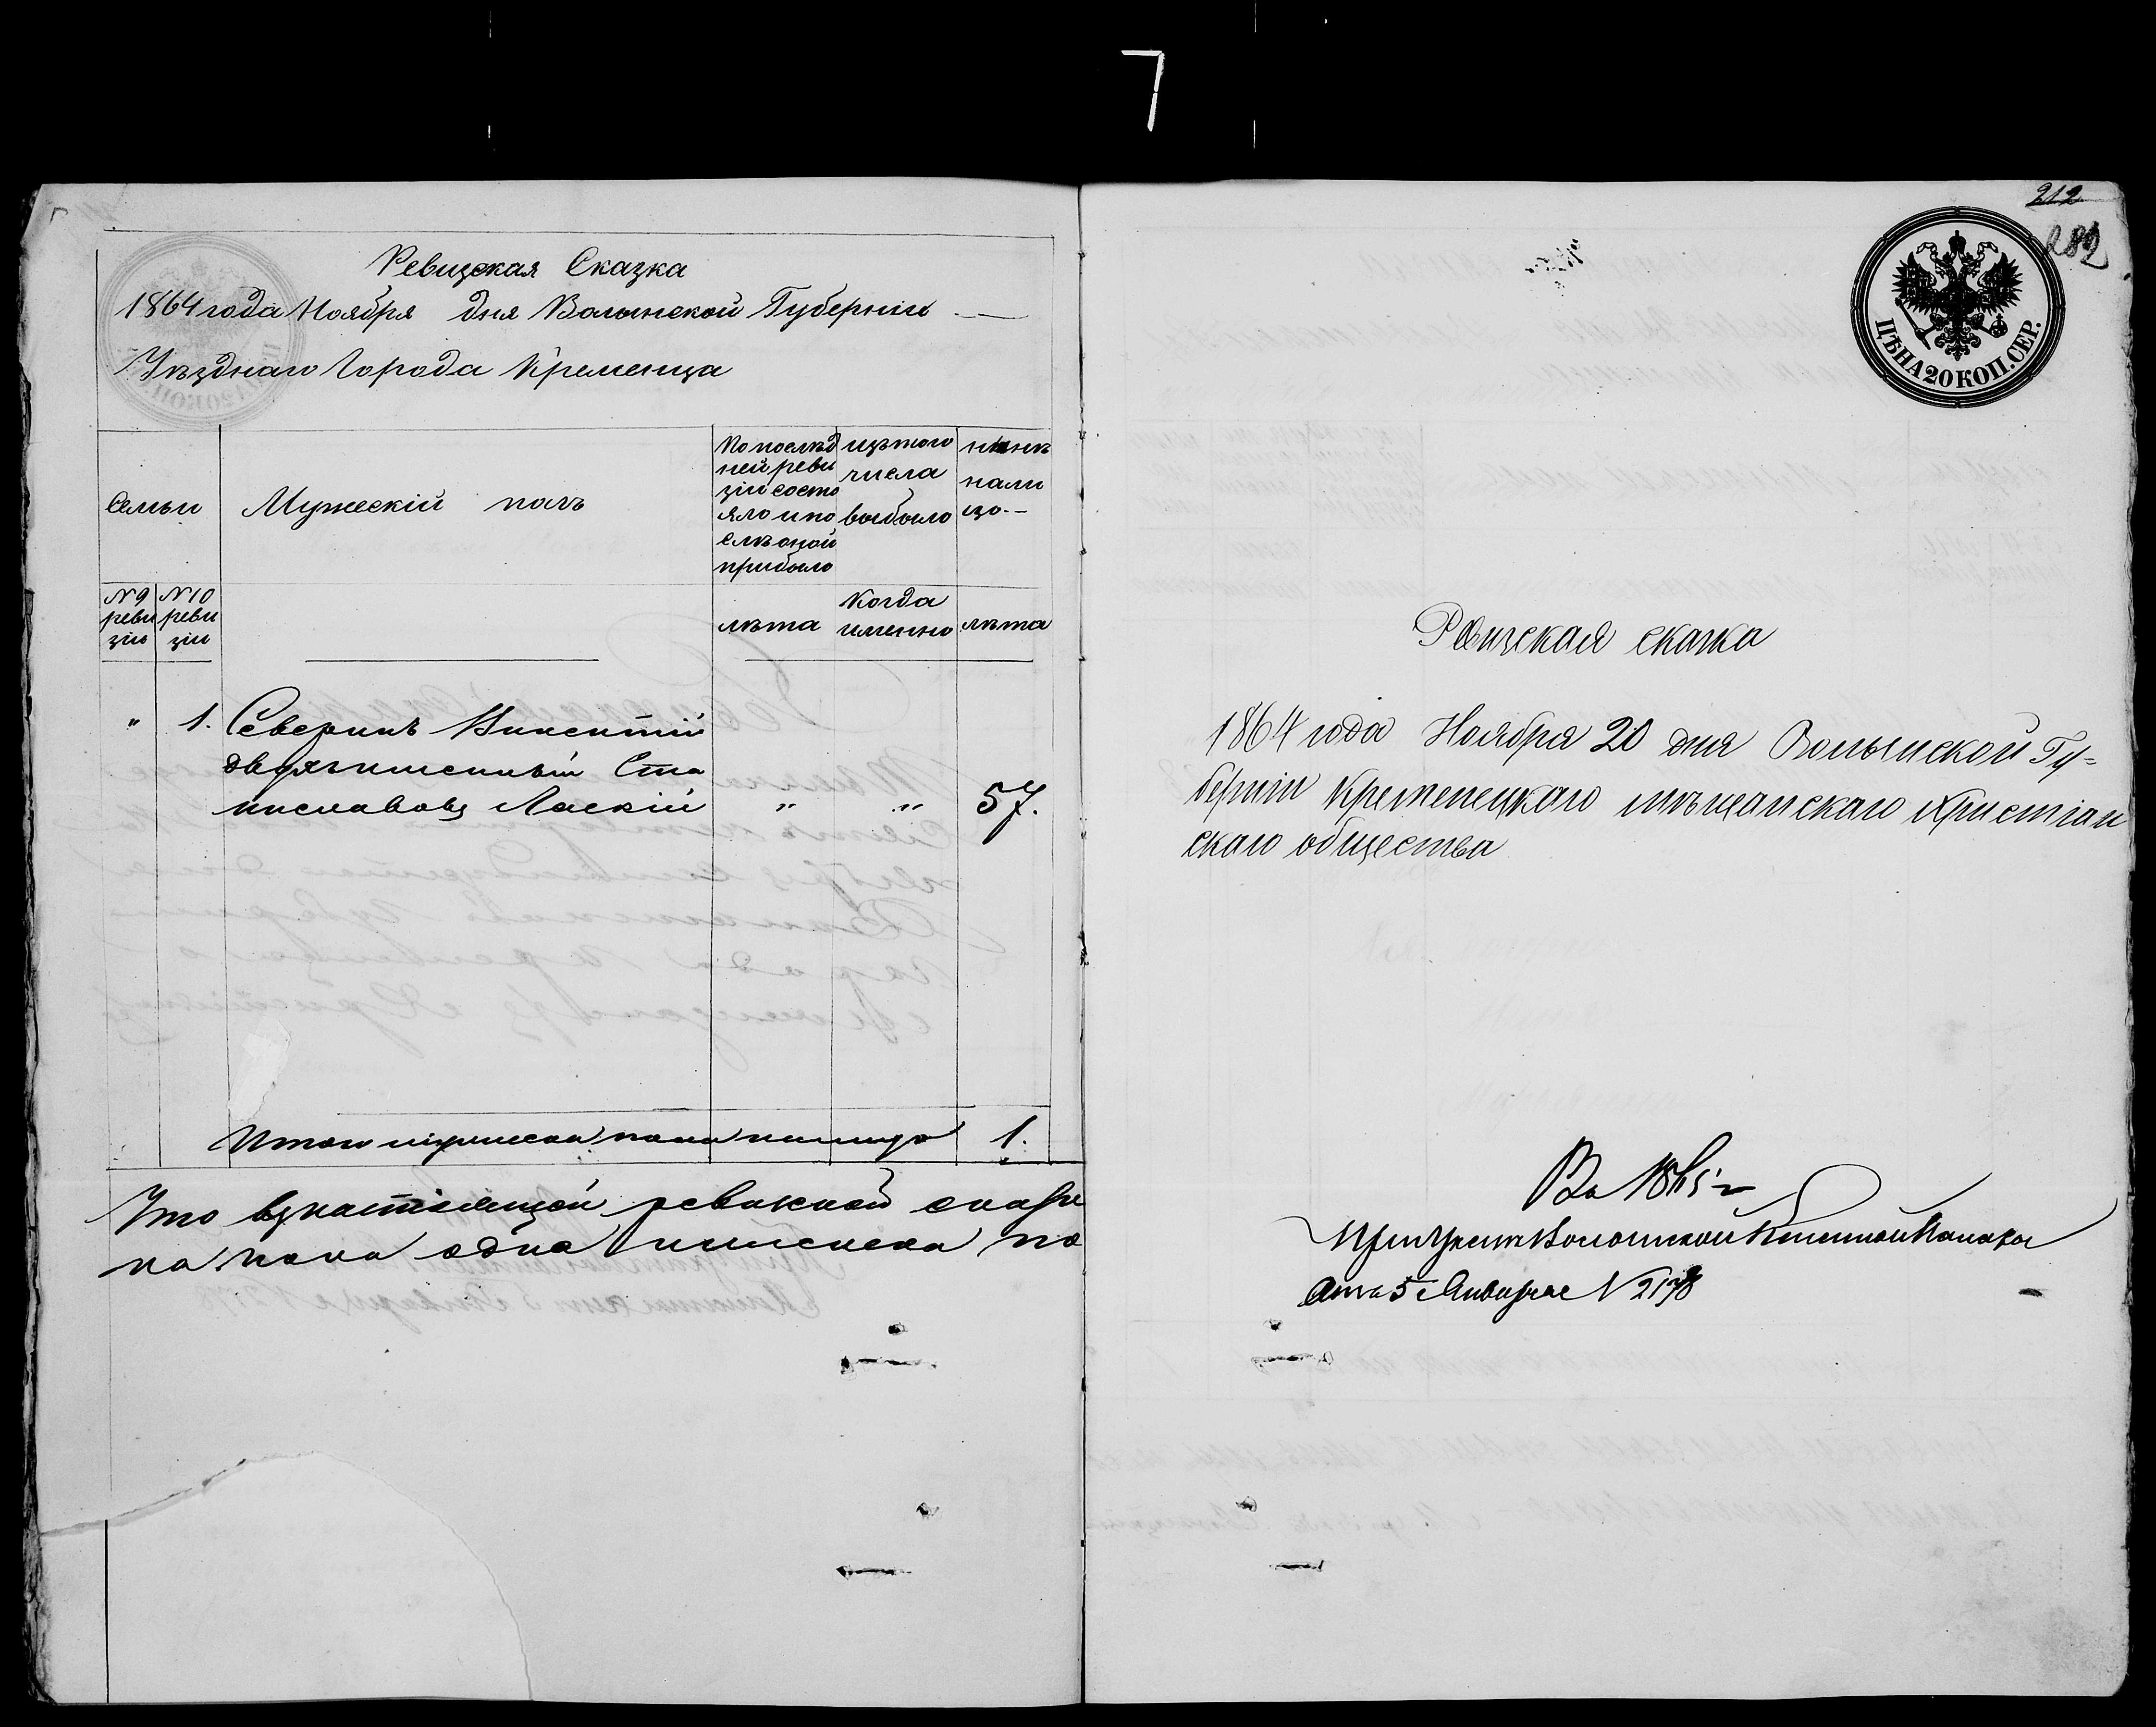 7
Ревизская Сказка
1864 года Ноября дня Волынской Губерніи
Уѣзднаго Города Кременца
Семьи
Мужескій полъ
По послѣд
ней реви
зіи состо
яло и по
слѣ оной
прибыло
изъ того
числа
выбыло
нынѣ
нали
цо
№ 9
реви
зіи
№ 10
реви
зіи
лѣта
Когда
именно
лѣта
" 1. Северинъ Викентій
двухъименный Ста
ниславовъ Ласкій " " 57.
Итого мужеска пола на лицо 1.
Что в настоящей ревизской сказке
на пола одна
212
282
ЦѢНА 20 КОП. СЕР.
Ревизская сказка
1864 года Ноября 20 дня Волынской Гу-
берніи Кременецкого мѣщанскаго Христіан
скаго общества
При Указе Волынской Казенной Палаты
Отъ 5 Января № 2178